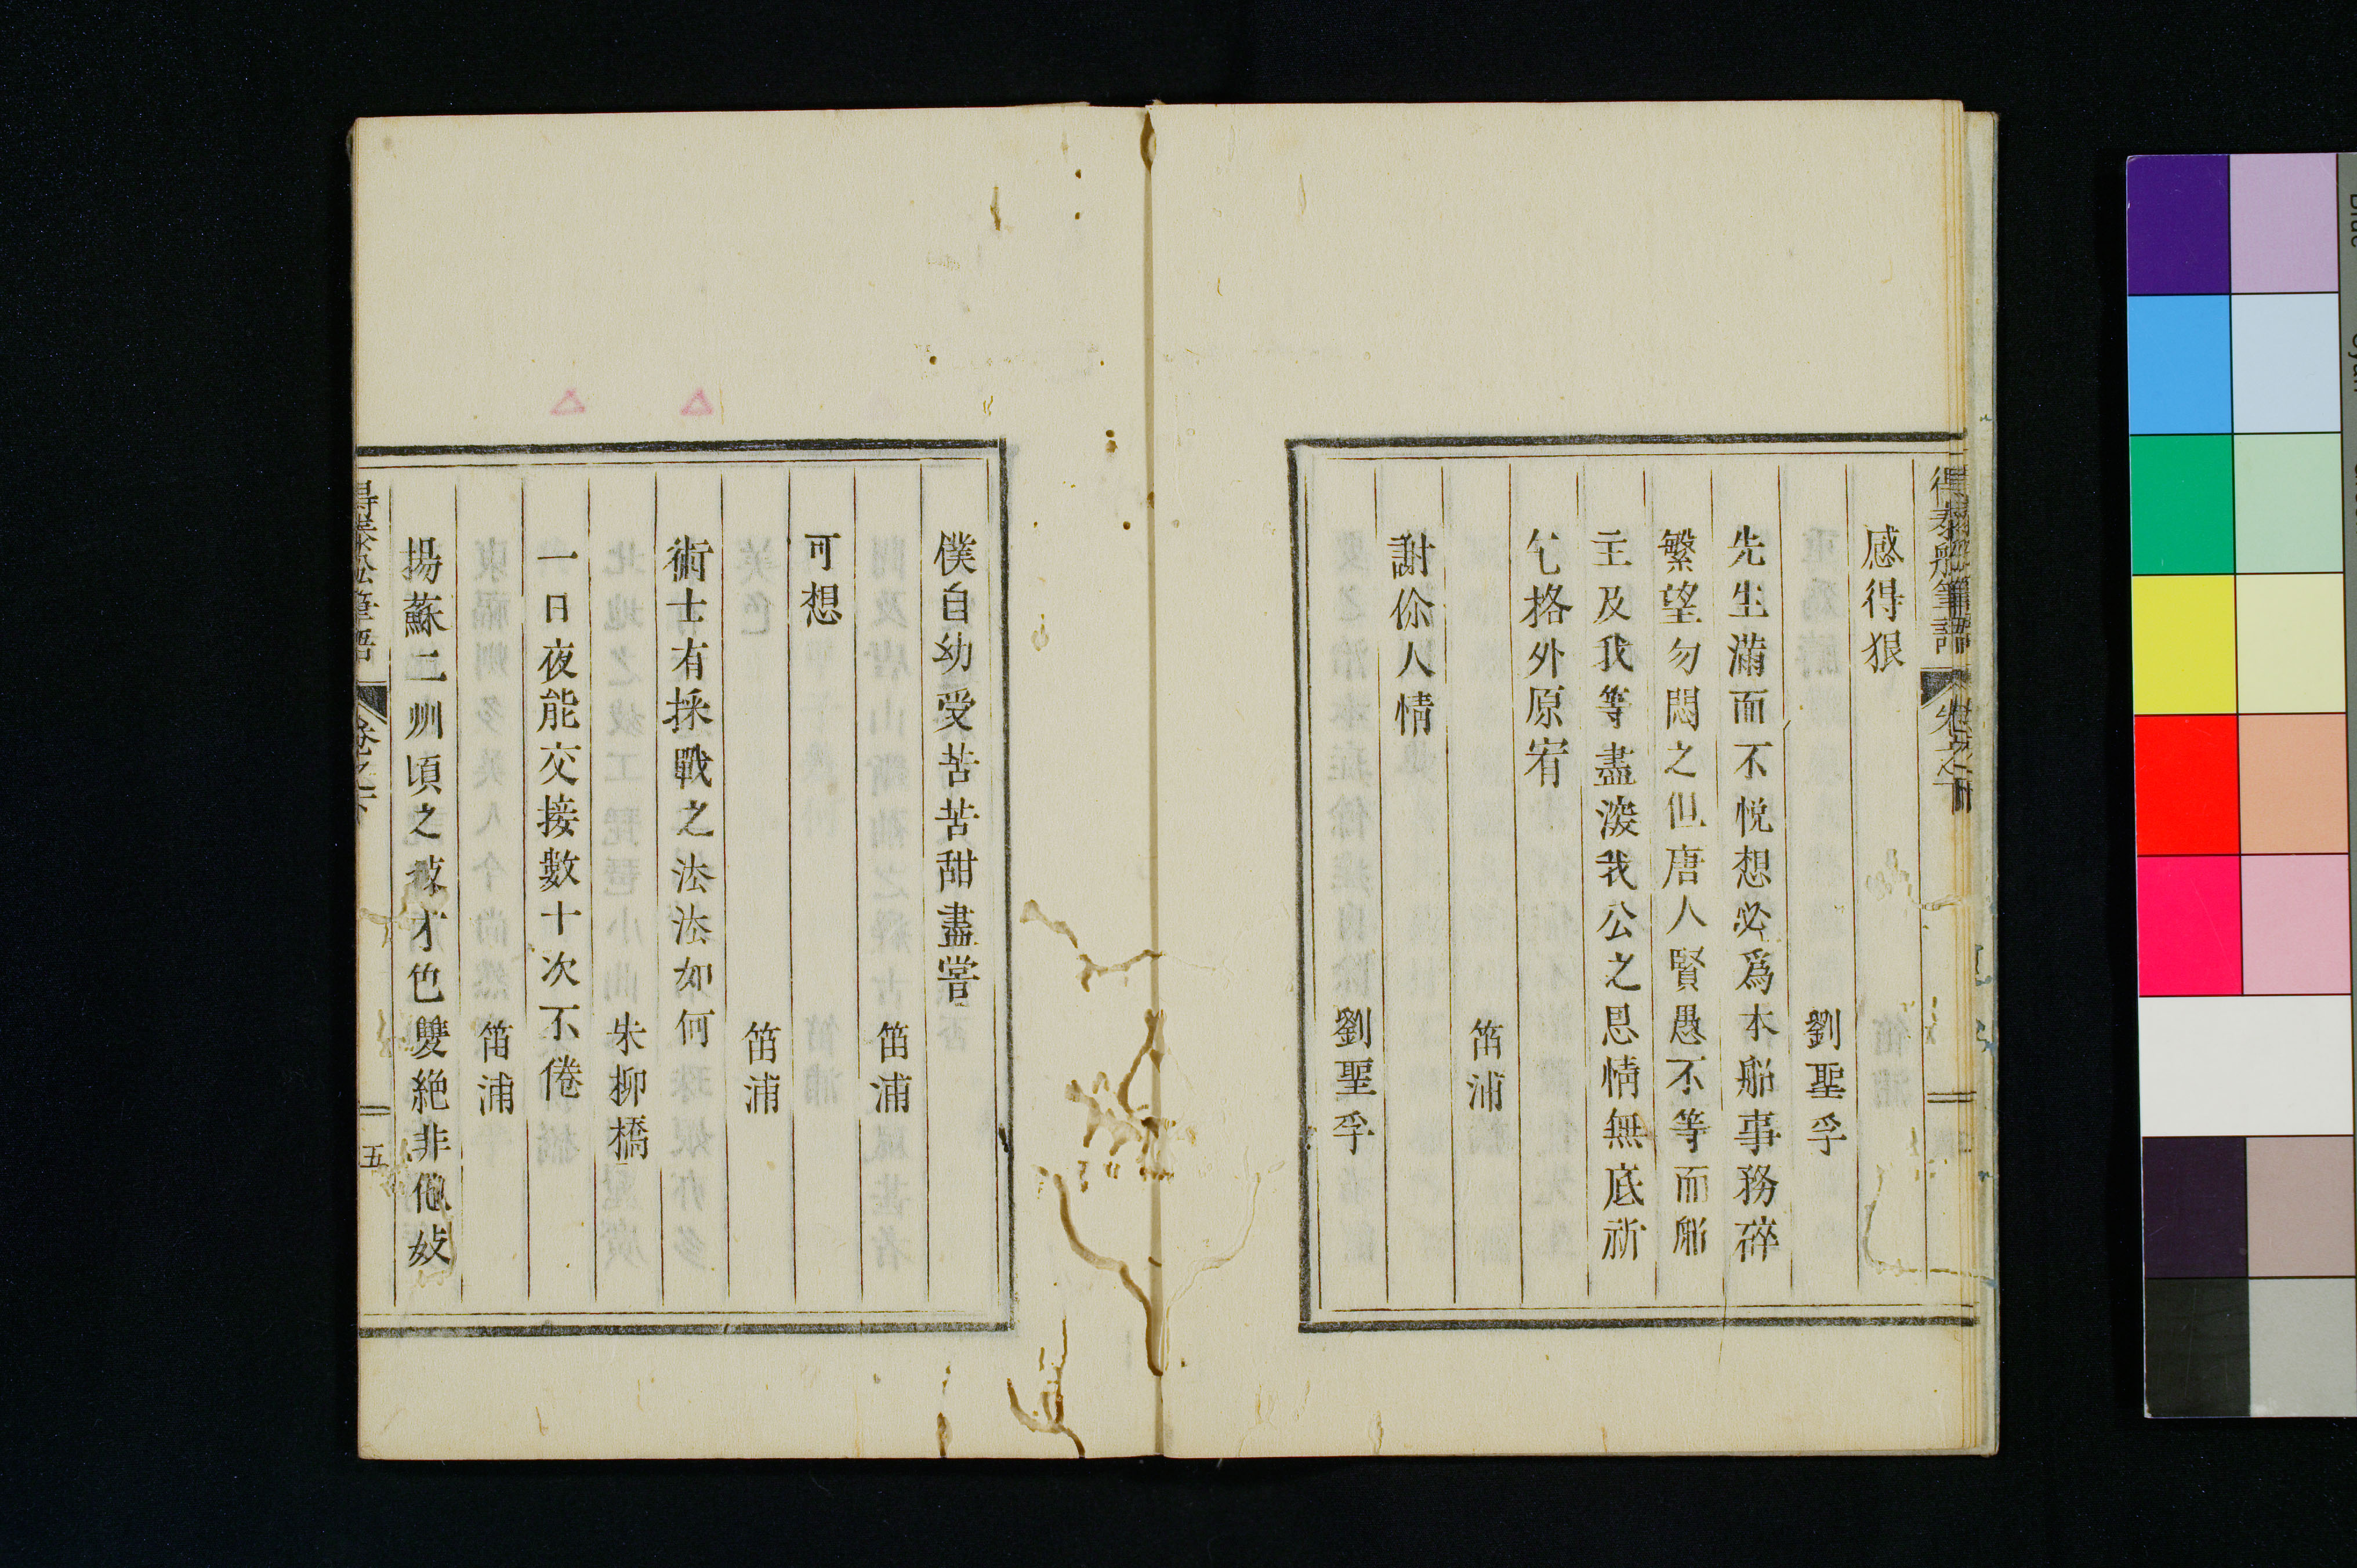 感得狠
劉聖孚
先生滿而不悅想必爲本船事務碎
繁望勿悶之但唐人賢愚不等而船
主及我等盡深我公之恩情無底祈
乞格外原宥
笛浦
謝伱人情
劉聖孚
僕自幼受苦苦甜盡嘗
笛浦
可想
笛浦
術士有採戰之法法如何
朱柳橋
一日夜能交接數十次不倦
笛浦
揚蘇二州頃之妓才色雙絶非佩妓
得泰船筆語
卷之下
五